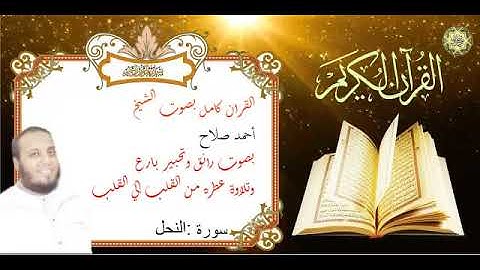 القرآن الكريم
القران كامل بصوت الشيخ
أحمد صلاح
بصوت رائق وتحبير بارع
وتلاوة عطره من القلب الي القلب
سورة :النحل